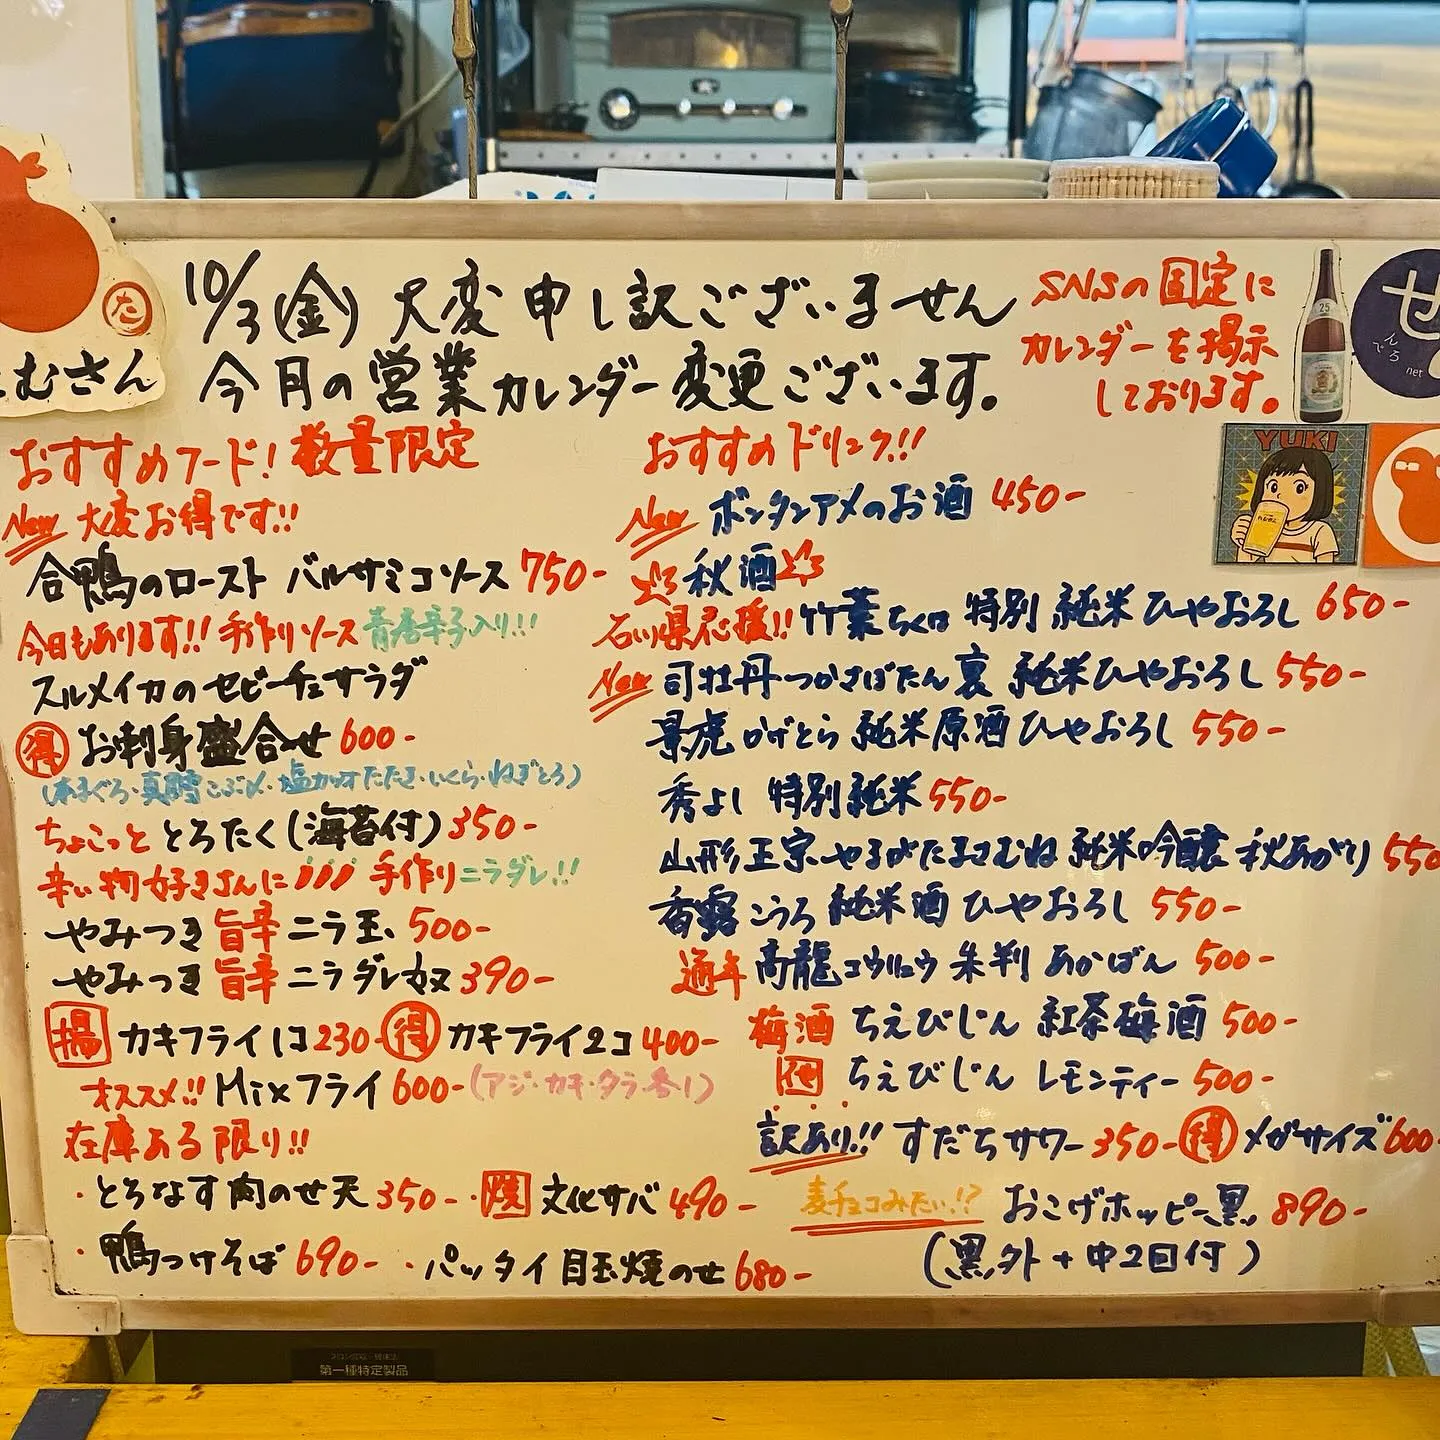 10/3(金) 大変申し訳ございません
今月の営業カレンダー変更ございます。
SNSの固定に
カレンダーを掲示
しております。
むさん
25
せ
んでろ
net
YUKI
おすすめフード! 数量限定
New 大変お得です!!
合鴨のロースト バルサミコソース 750-
今日もあります!! 手作りソース 青唐辛子入り!!
スルメイカのセビーチェサラダ
得 お刺身盛合せ 600-
(本まぐろ・真鯛こぶ〆・塩カツオたたき・いくら・ねぎとろ)
ちょこっと とろたく(海苔付) 350-
辛い物好きさんに 手作りニラダレ!!
やみつき 旨辛 ニラ玉 500-
やみつき 旨辛 ニラダレ奴 390-
揚 カキフライ1コ 230- 得 カキフライ2コ 400-
オススメ!! Mixフライ 600- (アジ・カキ・タラ・各1)
在庫ある限り!!
・とろなす肉のせ天 350- ・焼 文化サバ 490-
・鴨つけそば 690- ・パッタイ目玉焼のせ 680-
おすすめドリンク!!
New ボンタンアメのお酒 450-
秋酒
石川県応援!! 竹葉ちくは 特別純米ひやおろし 650-
New 司牡丹つかさぼたん 裏 純米ひやおろし 550-
景虎かげとら 純米原酒ひやおろし 550-
秀よし 特別純米 550-
山形正宗やまがたまさむね 純米吟醸 秋あがり 550
香露こうろ 純米酒ひやおろし 550-
通年 高龍コウリュウ 朱判 あかばん 500-
梅酒 ちえびじん 紅茶梅酒 500-
他 ちえびじん レモンティー 500-
訳あり!! すだちサワー 350- 得 メガサイズ 600
麦チョコみたい!? おこげホッピー黒 890-
(黒外+中2回付)
第一種特定製品